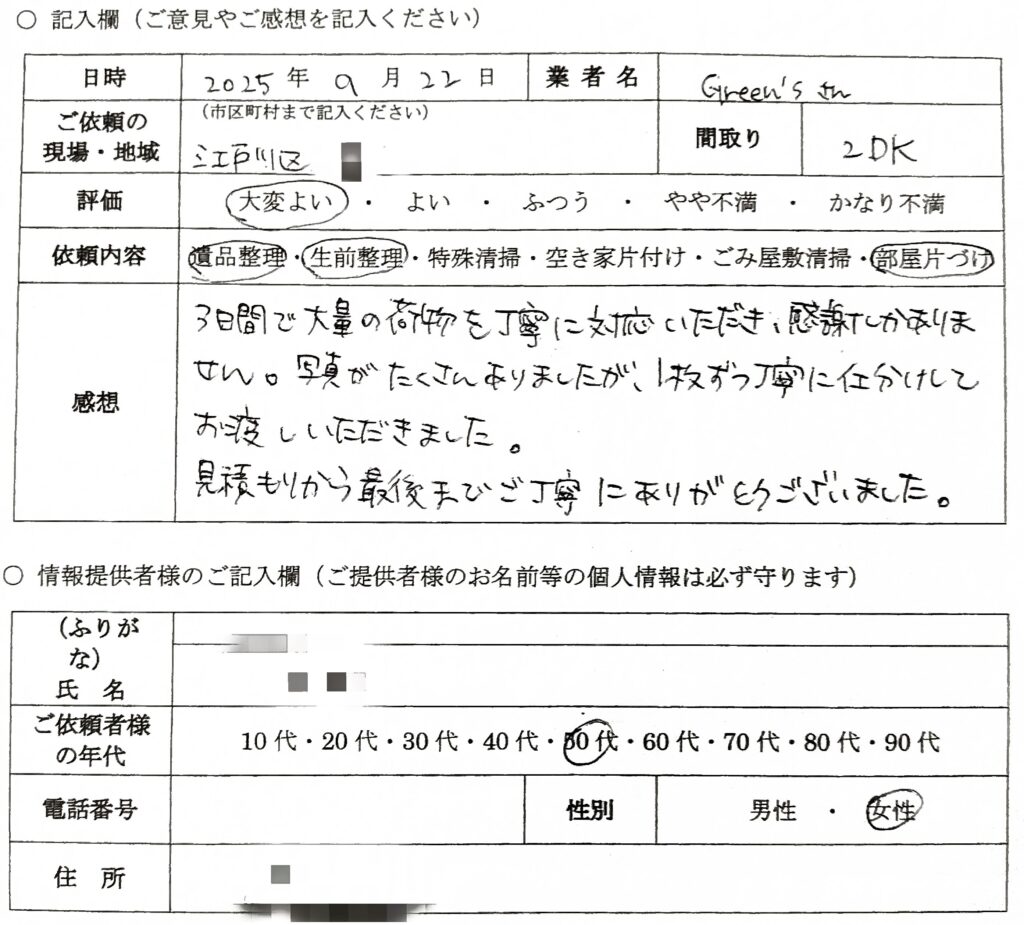 ○ 記入欄（ご意見やご感想を記入ください）
日時 2025 年 9 月 22 日 業者名 Green's さん
ご依頼の現場・地域 （市区町村まで記入ください） 江戸川区 間取り 2DK
評価 大変よい ・ よい ・ ふつう ・ やや不満 ・ かなり不満
依頼内容 遺品整理・生前整理・特殊清掃・空き家片付け・ごみ屋敷清掃・部屋片づけ
感想
3日間で大量の荷物を丁寧に対応いただき、感謝しかありま
せん。写真がたくさんありましたが、1枚ずつ丁寧に仕分けして
お渡しいただきました。
見積もりから最後までご丁寧にありがとうございました。
○ 情報提供者様のご記入欄（ご提供者様のお名前等の個人情報は必ず守ります）
（ふりがな）
氏 名
ご依頼者様の年代 10代・20代・30代・40代・50代・60代・70代・80代・90代
電話番号 性別 男性 ・ 女性
住 所